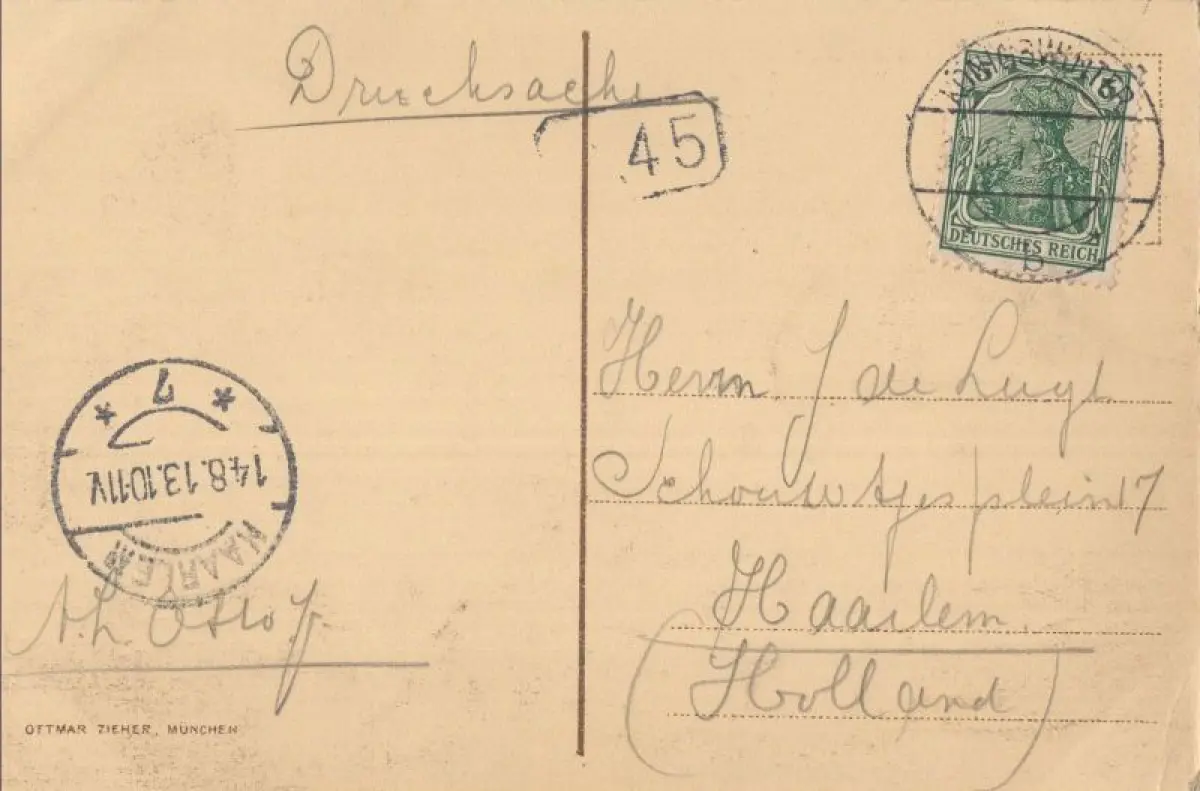 Drucksache
45
DEUTSCHES REICH
B
Herrn J de Lugt
Schouwtjesplein 17
Haarlem
(Holland)
7
14.8.13.10-11V
HAARLEM
OTTMAR ZIEHER, MÜNCHEN